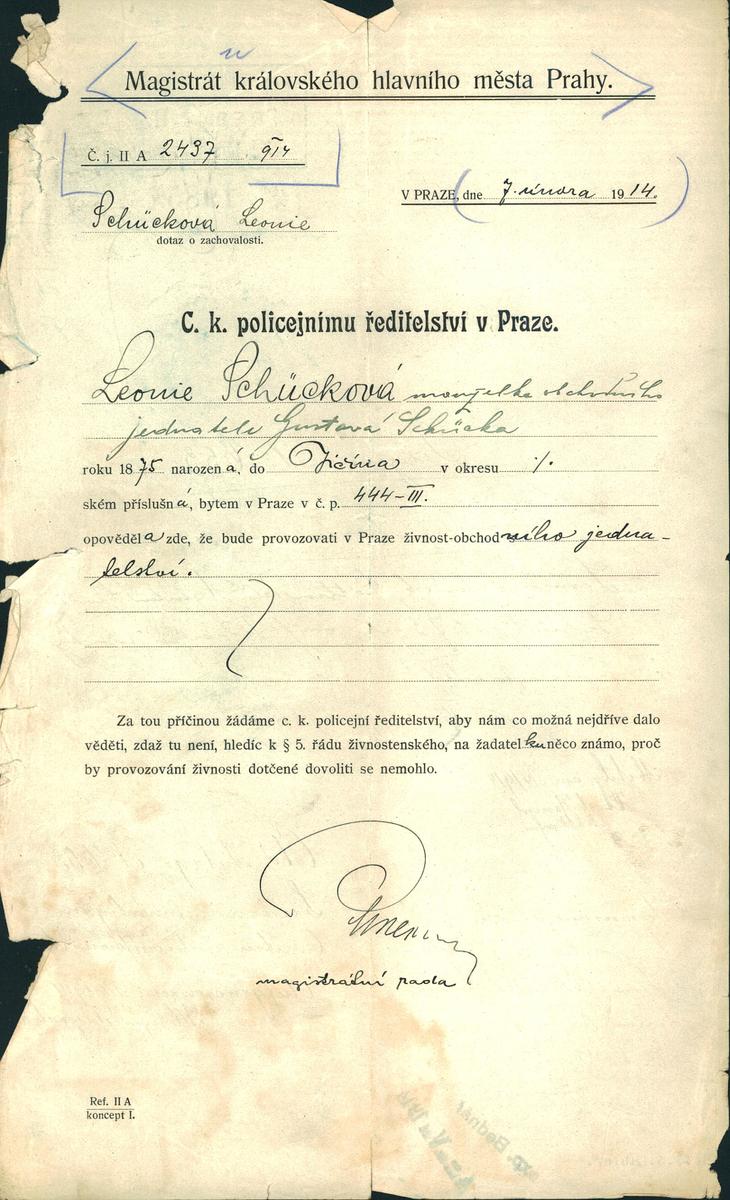 Magistrát královského hlavního města Prahy.
Č. j. II A 2437 914
V PRAZE, dne 7. února 1914.
Schücková Leonie
dotaz o zachovalosti.
C. k. policejnímu ředitelství v Praze.
Leonie Schücková manželka obchodního
jednatele Gustava Schücka
roku 1875 narozená, do Jičína v okresu ./.
ském příslušná, bytem v Praze v č. p. 444-III.
opověděla zde, že bude provozovati v Praze živnost obchodního jedna-
telství.
Za tou příčinou žádáme c. k. policejní ředitelství, aby nám co možná nejdříve dalo
věděti, zdaž tu není, hledíc k § 5. řádu živnostenského, na žadatelku něco známo, proč
by provozování živnosti dotčené dovoliti se nemohlo.
magistrátní rada
Ref. II A
koncept I.